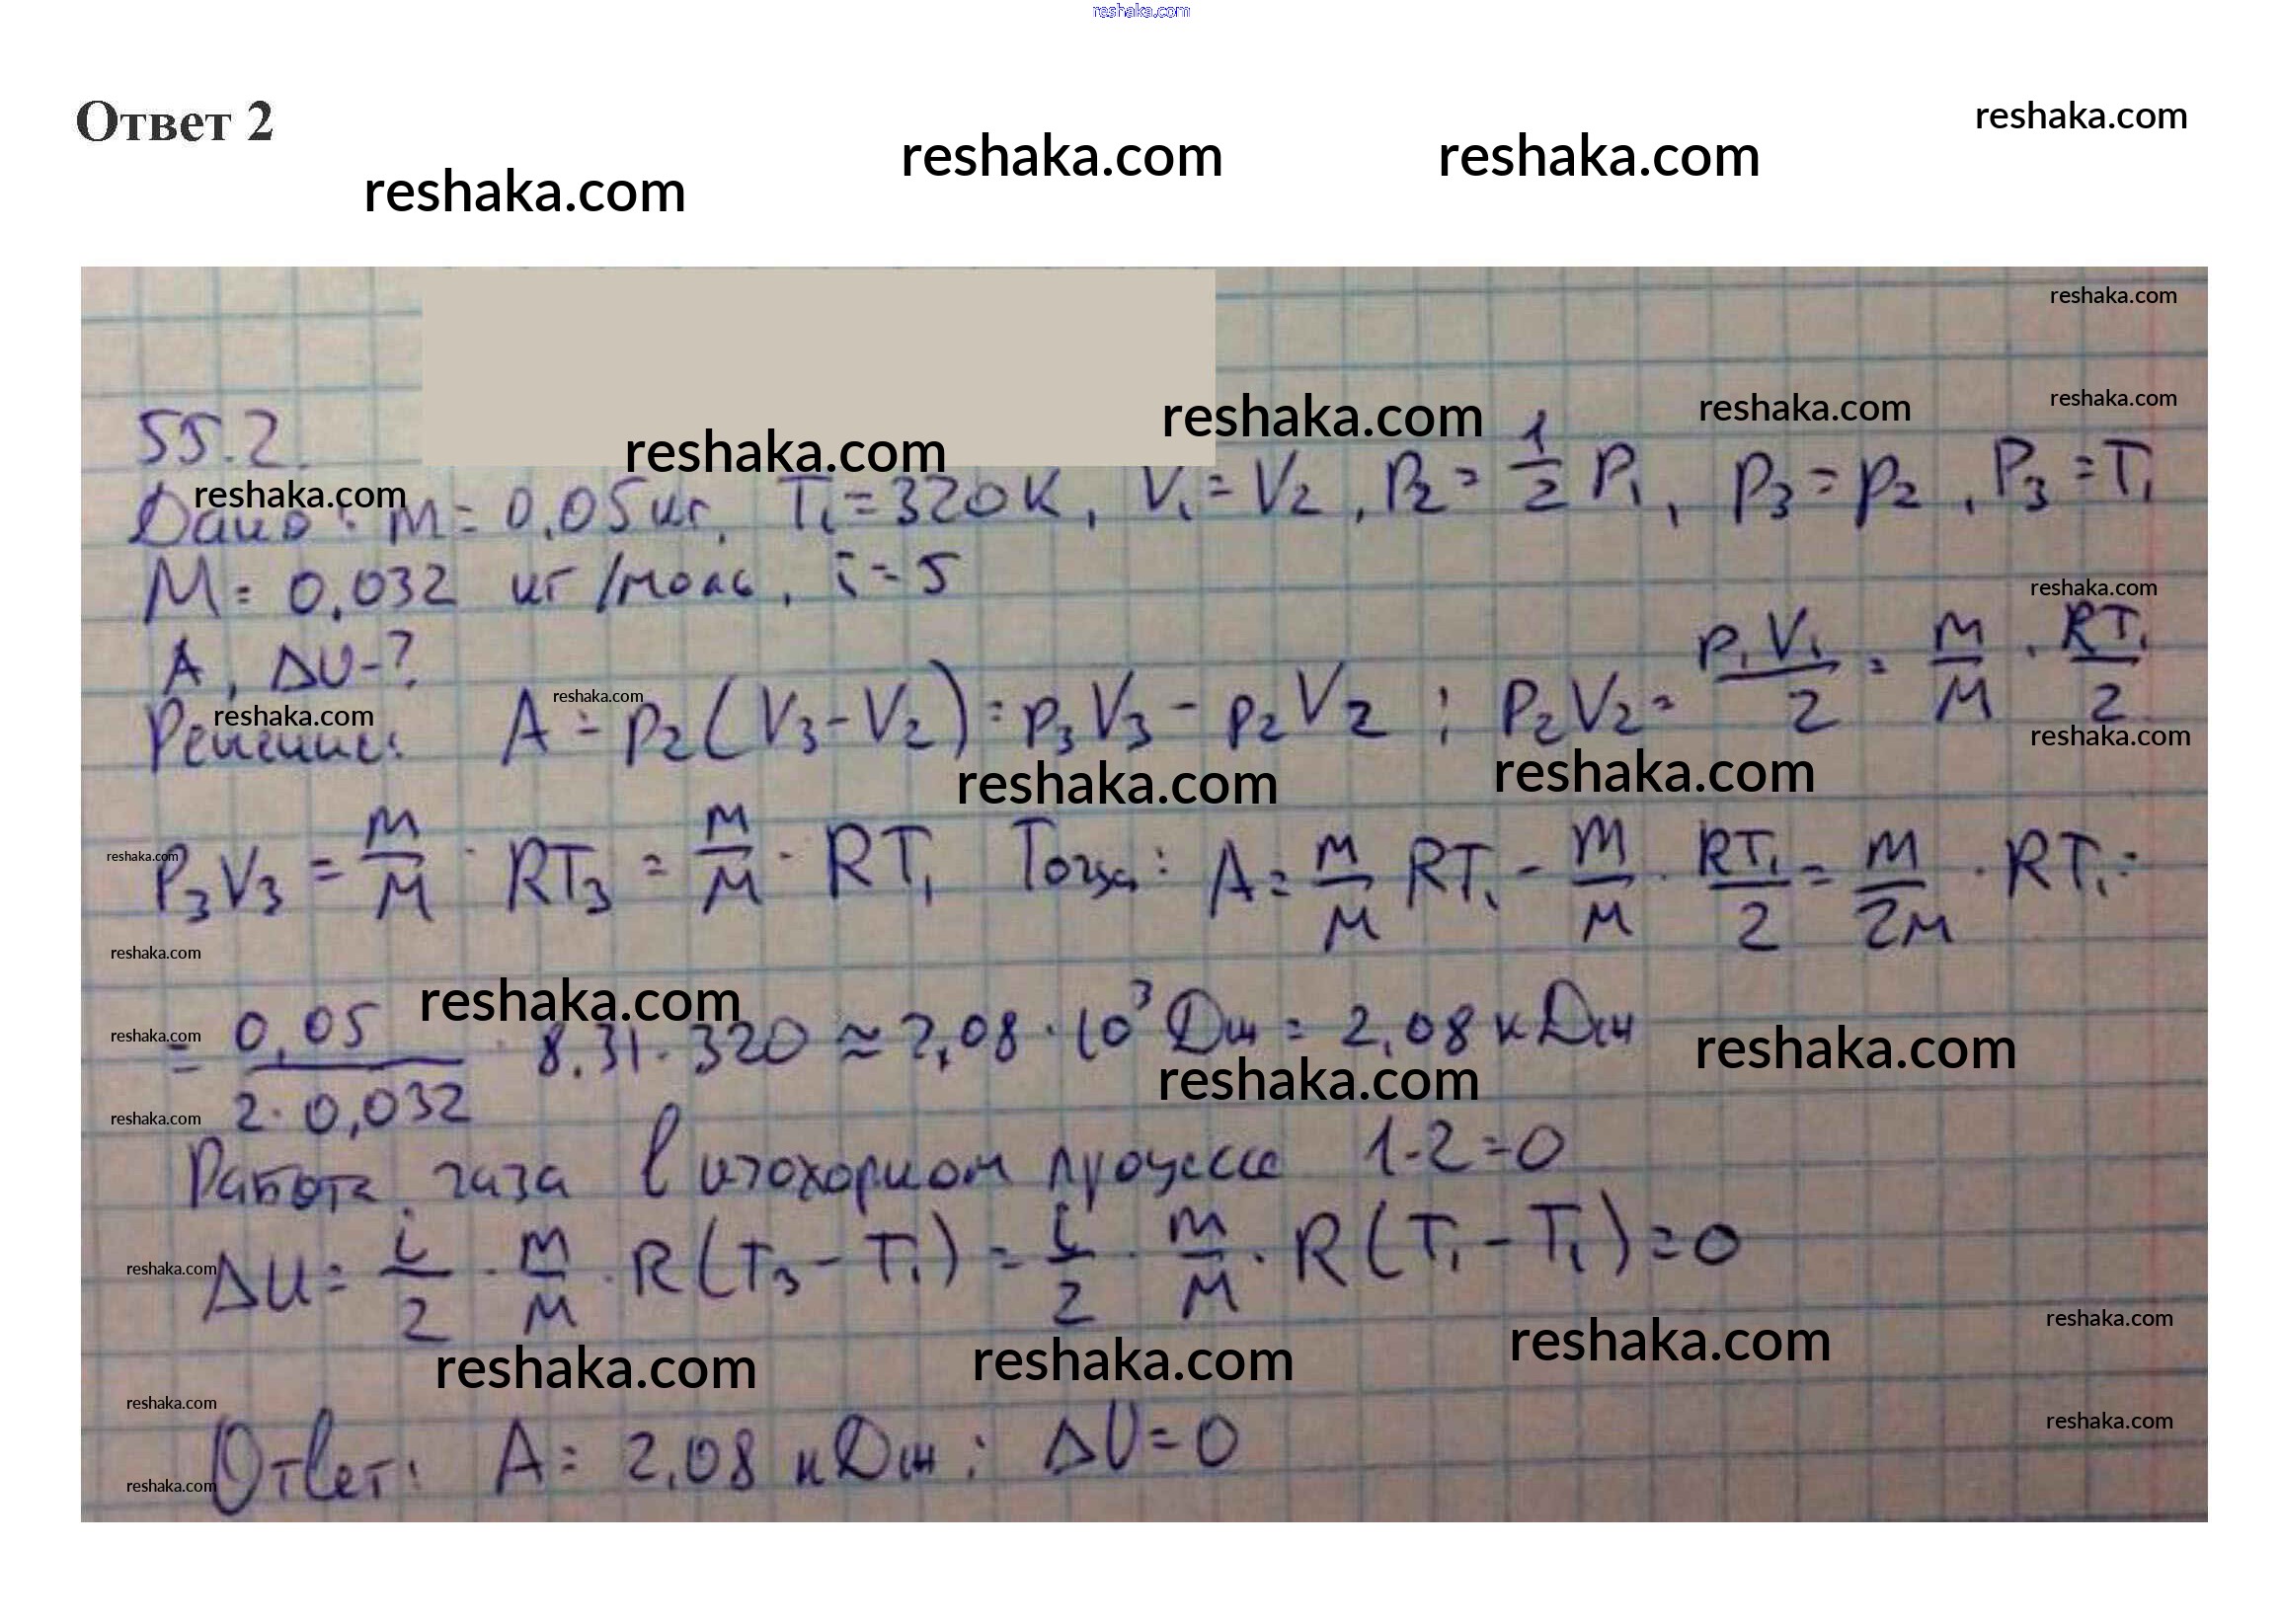 reshaka.com
Ответ 2
reshaka.com
reshaka.com reshaka.com
reshaka.com
reshaka.com
55.2.
reshaka.com reshaka.com reshaka.com reshaka.com
reshaka.com
Дано: m = 0,05 кг, T₁ = 320 К, V₁ = V₂, P₂ = 1/2 P₁, P₃ = P₂, P₃ = T₁
M = 0,032 кг/моль, i = 5
reshaka.com
A, ΔU - ?
reshaka.com reshaka.com
Решение: A = p₂(V₃ - V₂) = p₃V₃ - p₂V₂ ; P₂V₂ = p₁V₁/2 = m/M · RT₁/2
reshaka.com
reshaka.com reshaka.com
reshaka.com
P₃V₃ = m/M · RT₃ = m/M · RT₁ Тогда: A = m/M RT₁ - m/M · RT₁/2 = m/2M · RT₁ =
reshaka.com
reshaka.com
reshaka.com
= 0,05/2·0,032 · 8,31 · 320 ≈ 2,08 · 10³ Дж = 2,08 кДж
reshaka.com reshaka.com
reshaka.com
Работа газа в изохорном процессе 1-2 = 0
ΔU = i/2 · m/M · R(T₃ - T₁) = i/2 · m/M · R(T₁ - T₁) = 0
reshaka.com
reshaka.com
reshaka.com reshaka.com reshaka.com
reshaka.com
reshaka.com
Ответ: A = 2,08 кДж ; ΔU = 0
reshaka.com